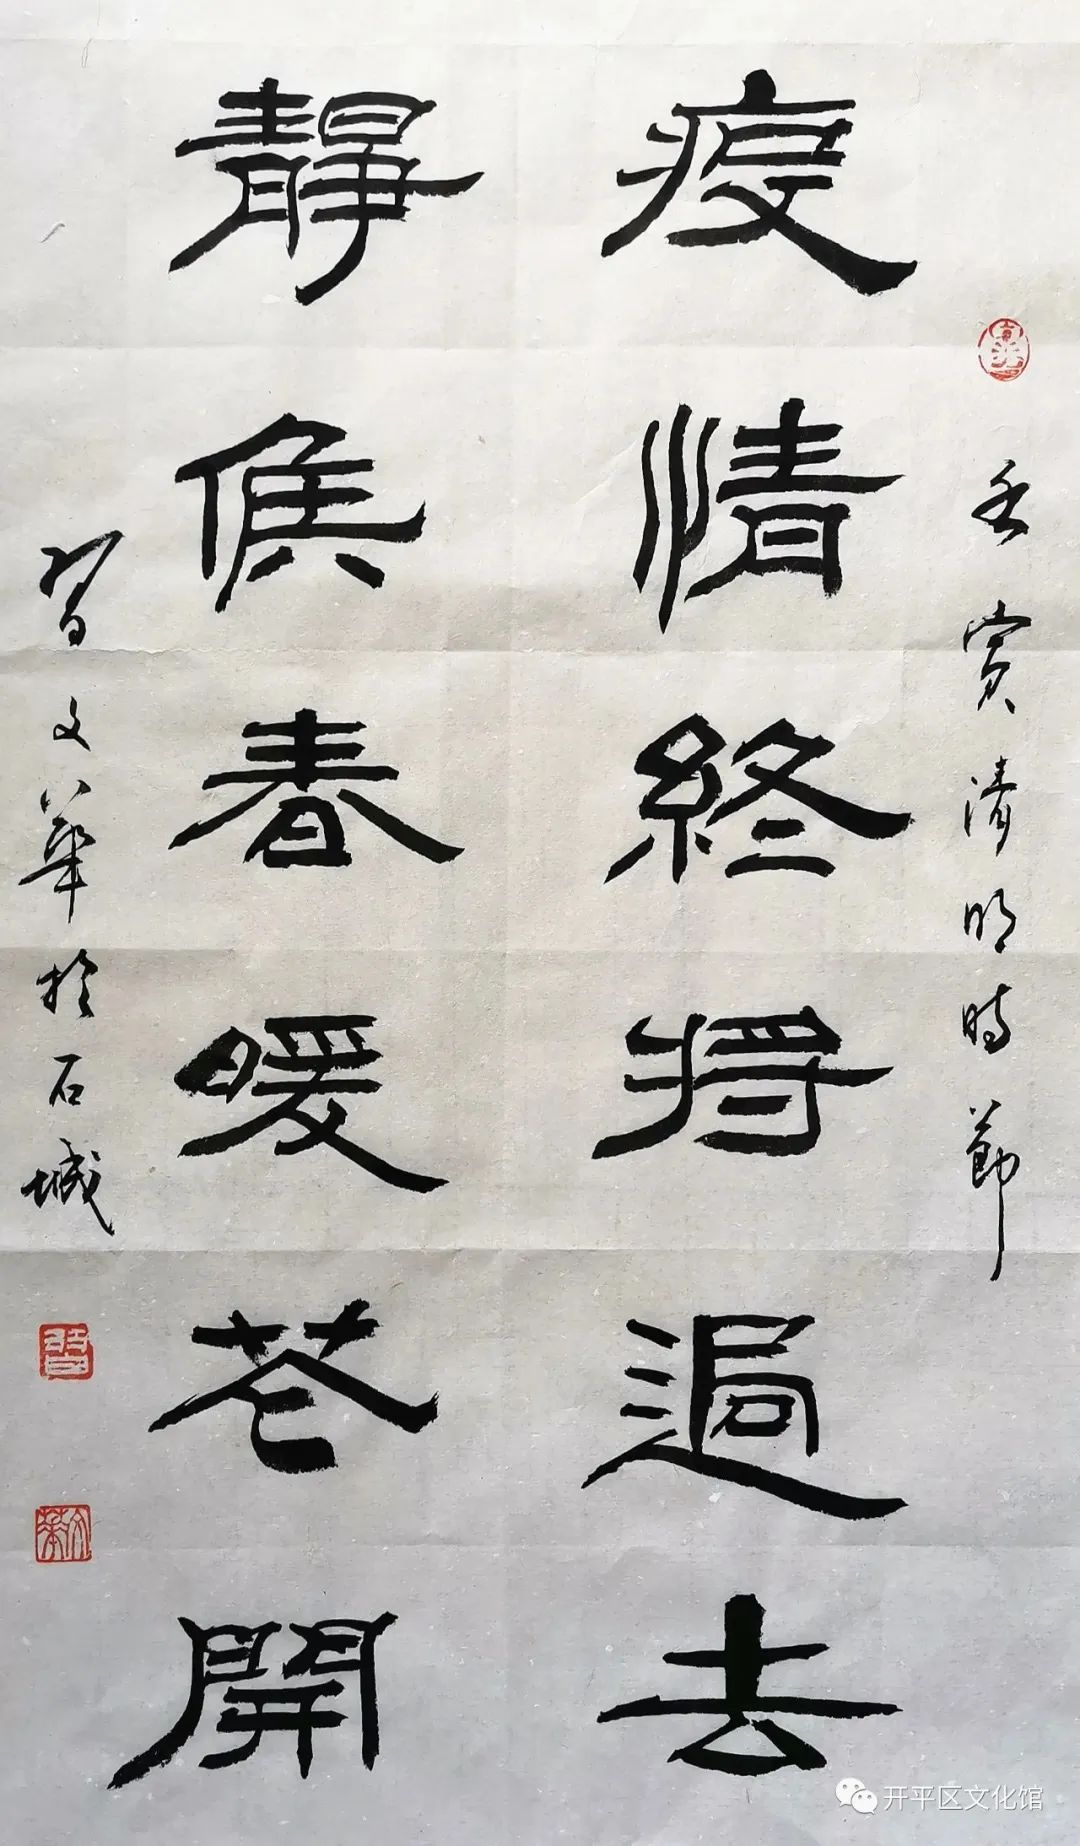 壬寅清明時節
疫情終將過去
靜候春暖花開
習文華於石城
开平区文化馆